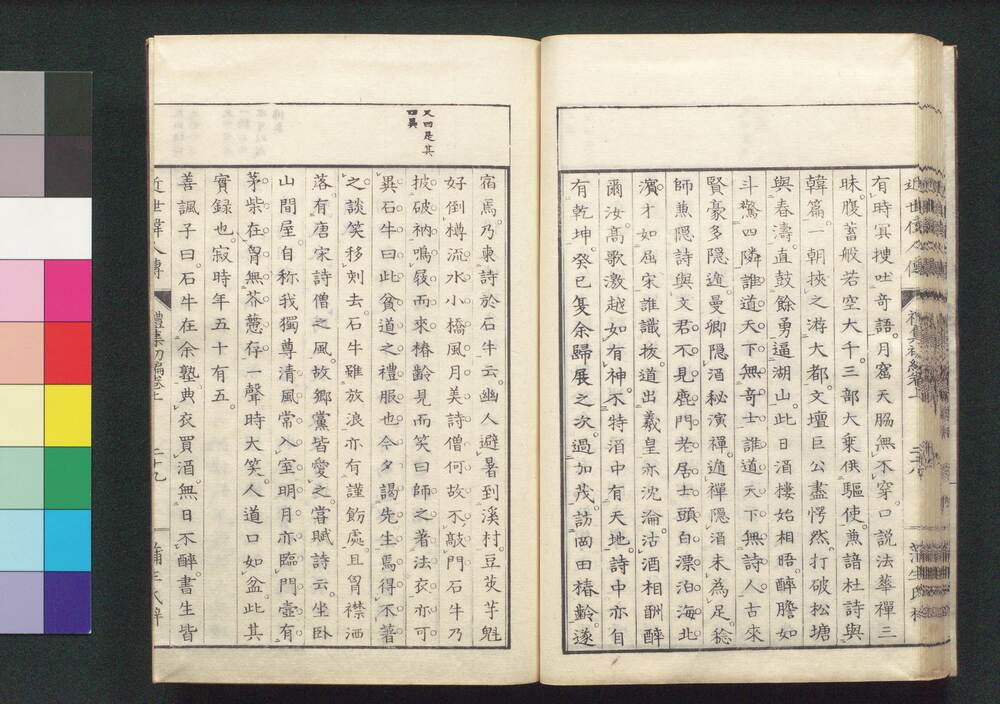 有時冥捜吐奇語月窟天脇無不穿口説法華禪三
昧腹蓄般若空大千三部大乗供驅使兼諳杜詩與
韓篇一朝挾之游大都文壇巨公盡愕然打破松塘
與春濤直鼓餘勇逼湖山此日酒樓始相晤醉膽如
斗驚四隣誰道天下無奇士誰道天下無詩人古來
賢豪多隠遁曼卿隠酒秘演禪遁禪隠酒未為足稔
師兼隠詩與文君不見鹿門老居士頭白漂泊海北
濱才如屈宋誰識抜道出羲皇亦沈淪沽酒相酬醉
爾汝高歌激越如有神不特酒中有天地詩中亦自
有乾坤癸巳夏余歸展之次過加茂訪岡田椿齡遂
又曰是其
四異
宿焉乃柬詩於石牛云幽人避暑到溪村豆莢芋魁
好倒樽流水小橋風月美詩僧何故不敲門石牛乃
披破衲鳴屐而來椿齡見而笑曰師之著法衣亦可
異石牛曰此貧道之禮服也今夕謁先生焉得不著
之談笑移刻去石牛雖放浪亦有謹飭處且胷襟洒
落有唐宋詩僧之風故郷黨皆愛之嘗賦詩云坐卧
山間屋自称我獨尊清風常入室明月亦臨門壺有
茅柴在胷無芥蔕存一聲時大笑人道口如盆此其
實録也寂時年五十有五
善諷子曰石牛在余塾典衣買酒無日不醉書生皆
近世偉人傳
禮集初編卷上
二十九
蒲生氏梓